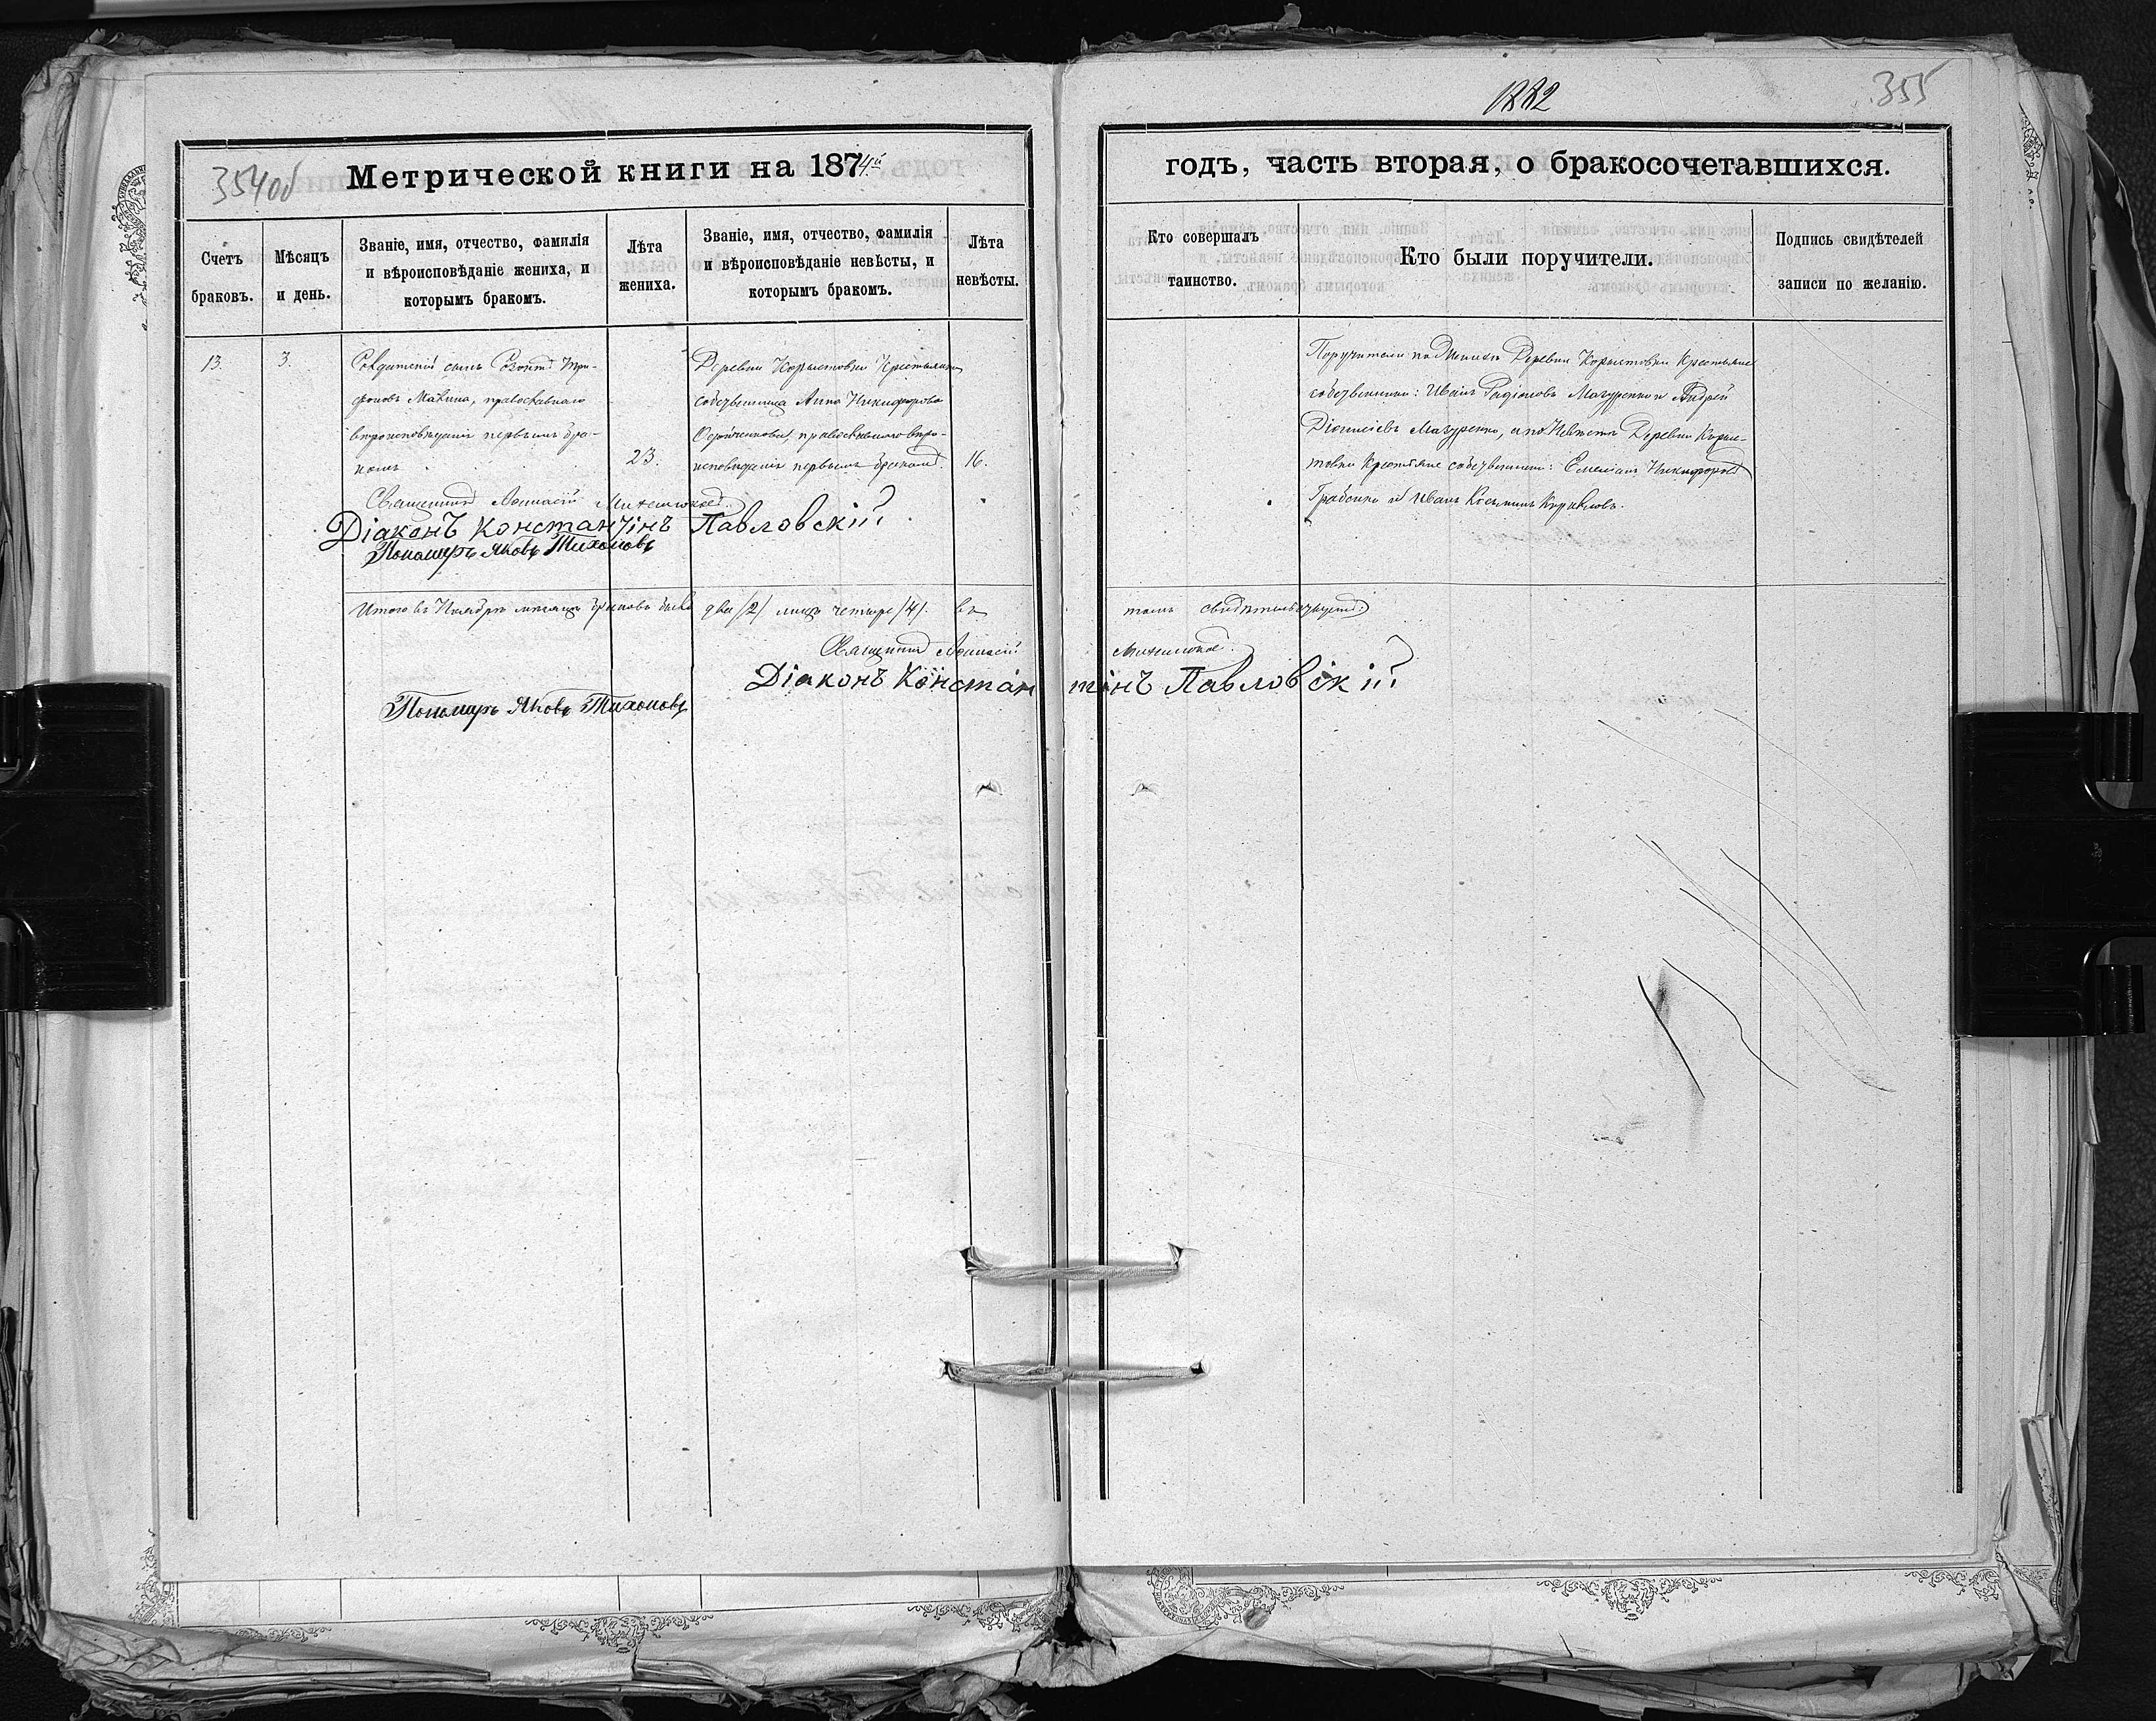 1882
355
354об
Метрической книги на 1874й
годъ, часть вторая, о бракосочетавшихся.
Счетъ
браковъ.
Мѣсяцъ
и день.
Званіе, имя, отчество, фамилія
и вѣроисповѣданіе жениха, и
которымъ бракомъ.
Лѣта
жениха.
Званіе, имя, отчество, фамилія
и вѣроисповѣданіе невѣсты, и
которымъ бракомъ.
Лѣта
невѣсты.
Кто совершалъ
таинство.
Кто были поручители.
Подпись свидѣтелей
записи по желанію.
13.
3.
сынъ Три-
фоновъ православнаго
вѣроисповѣданія первымъ бра-
комъ
23.
Деревни Корыстовки Крестьянка
собственница Анна Никифорова
православнаго вѣро-
исповѣданія первымъ бракомъ.
16.
Поручители по Деревни Корыстовки Крестьяне
собственники: Иванъ Радіоновъ Мазуренко и Андрей
Діонисіевъ Мазуренко, а по Невѣстѣ Деревни Корыс-
товки Крестьяне собственники: Емеліанъ Никифоровъ
и Иванъ Косьминъ
Священникъ Афанасій
Діаконъ Константінъ Павловскій
Пономарь Яковъ Тихоновъ
Итого въ Ноябрѣ мѣсяцѣ браковъ было два /2/ лицъ четыре /4/. въ томъ свидѣтельствуетъ:
Священникъ Афанасій
Діаконъ Константінъ Павловскій
Пономарь Яковъ Тихоновъ